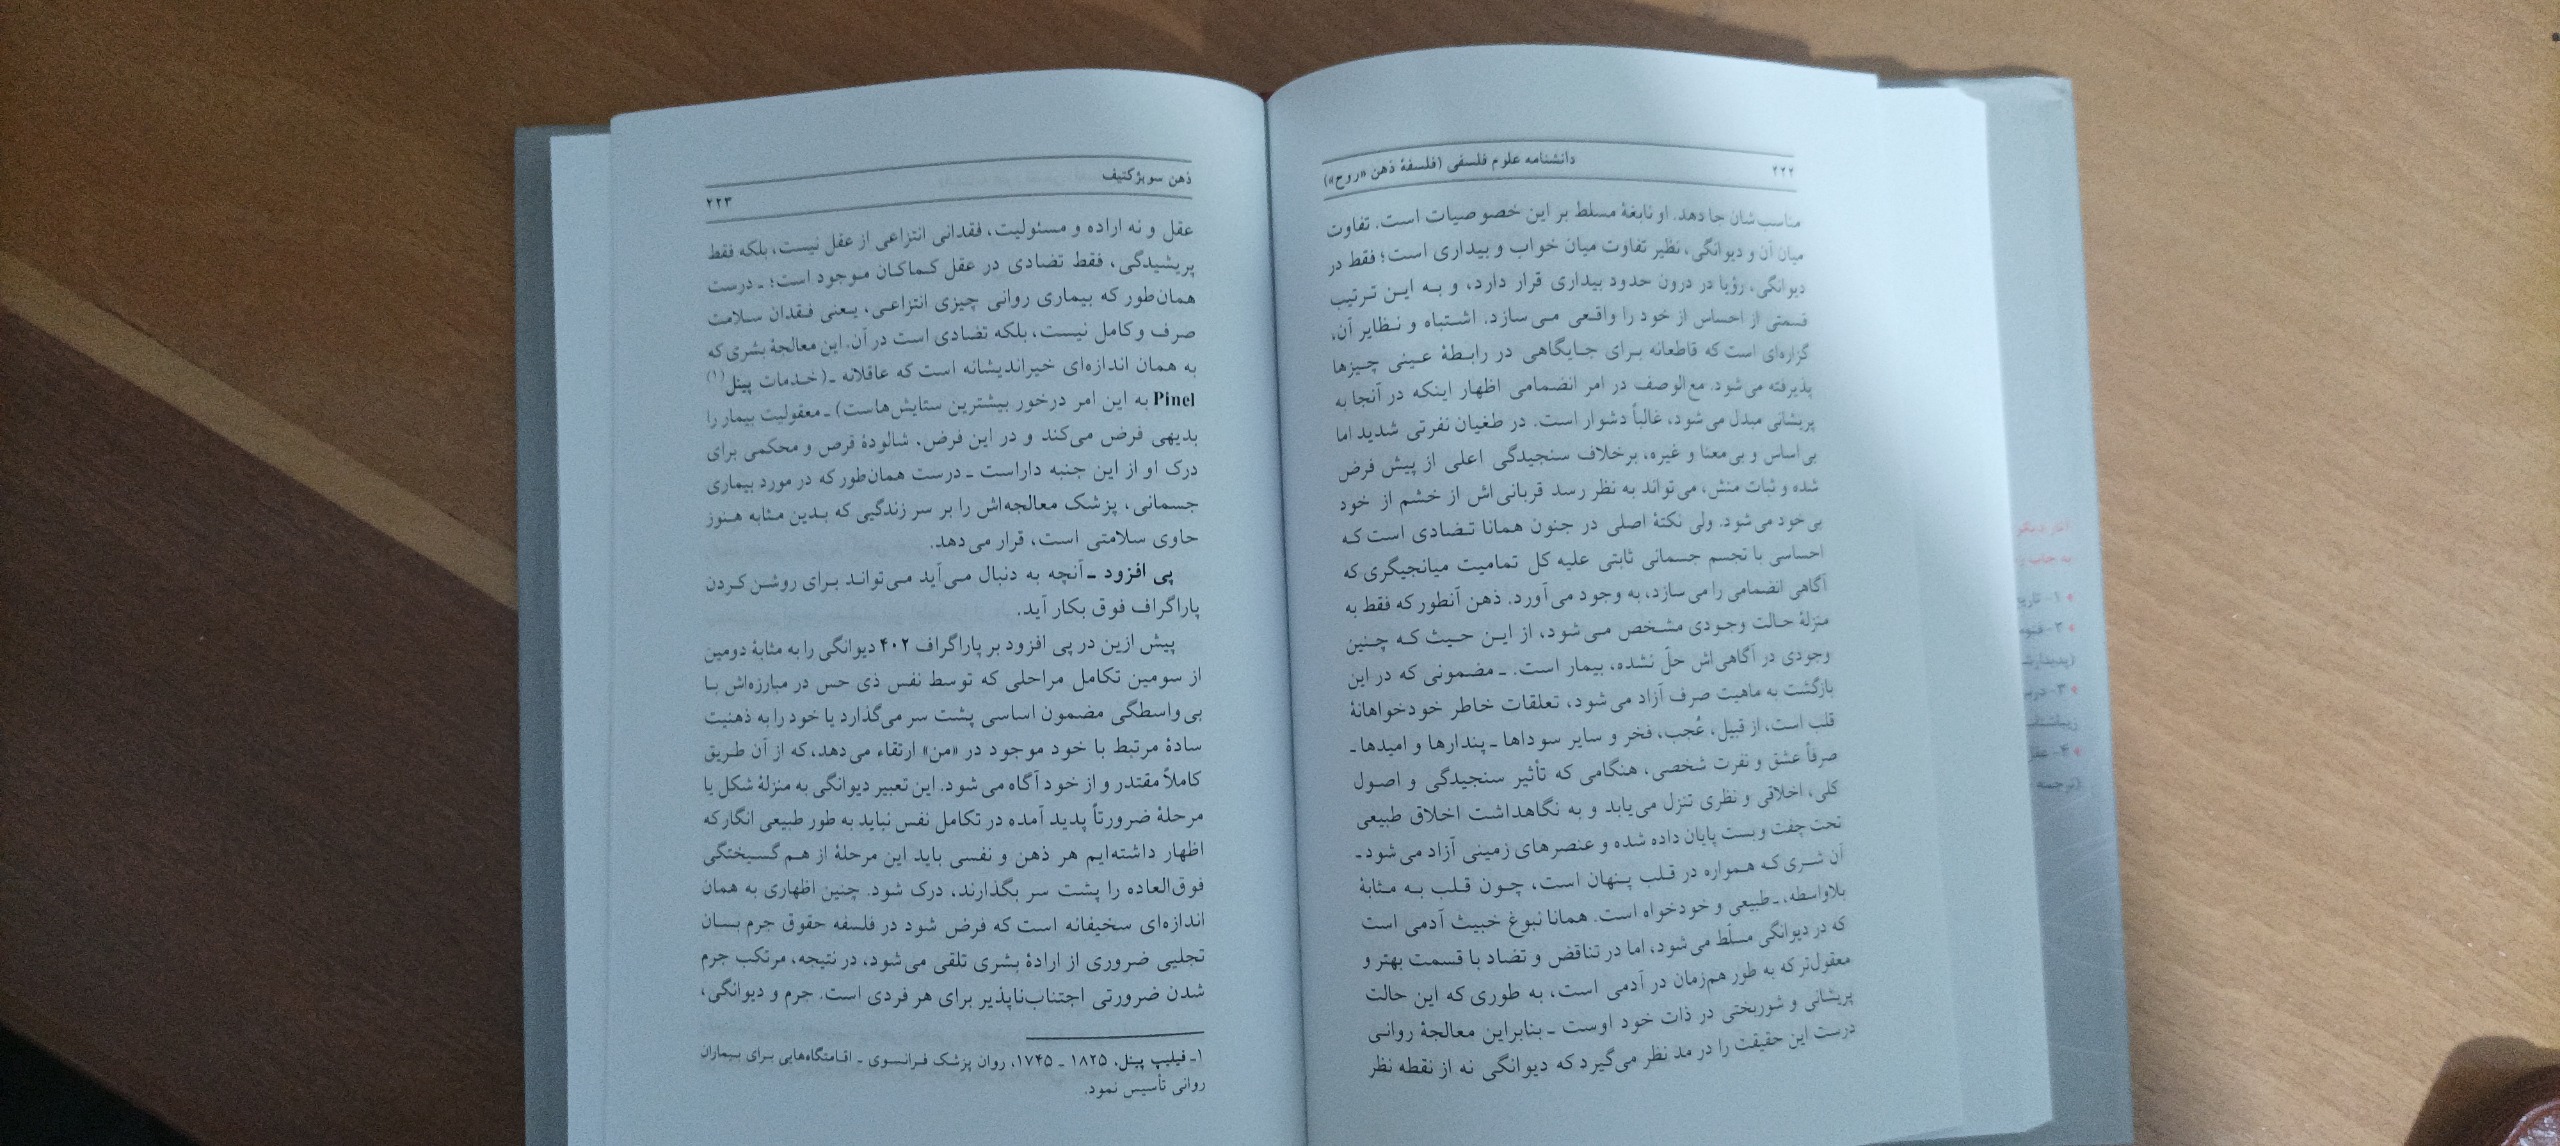 ۲۲۲
دانشنامه علوم فلسفی (فلسفهٔ ذهن «روح»)
مناسب‌شان جا دهد. او نابغهٔ مسلط بر این خصوصیات است. تفاوت
میان آن و دیوانگی، نظیر تفاوت میان خواب و بیداری است؛ فقط در
دیوانگی، رؤیا در درون حدود بیداری قرار دارد، و به این ترتیب
قسمتی از احساس از خود را واقعی می‌سازد. اشتباه و نظایر آن،
گزاره‌ای است که قاطعانه برای جایگاهی در رابطهٔ عینی چیزها
پذیرفته می‌شود. مع‌الوصف در امر انضمامی اظهار اینکه در آنجا به
پریشانی مبدل می‌شود، غالباً دشوار است. در طغیان نفرتی شدید اما
بی‌اساس و بی‌معنا و غیره، برخلاف سنجیدگی اعلی از پیش فرض
شده و ثبات منش، می‌تواند به نظر رسد قربانی‌اش از خشم از خود
بی‌خود می‌شود. ولی نکتهٔ اصلی در جنون همانا تضادی است که
احساسی با تجسم جسمانی ثابتی علیه کل تمامیت میانجیگری که
آگاهی انضمامی را می‌سازد، به وجود می‌آورد. ذهن آنطور که فقط به
منزلهٔ حالت وجودی مشخص می‌شود، از این حیث که چنین
وجودی در آگاهی‌اش حلّ نشده، بیمار است. ـ مضمونی که در این
بازگشت به ماهیت صرف آزاد می‌شود، تعلقات خاطر خودخواهانهٔ
قلب است، از قبیل، عُجب، فخر و سایر سوداها ـ پندارها و امیدها ـ
صرفاً عشق و نفرت شخصی، هنگامی که تأثیر سنجیدگی و اصول
کلی، اخلاقی و نظری تنزل می‌یابد و به نگاهداشت اخلاق طبیعی
تحت چفت و بست پایان داده شده و عنصرهای زمینی آزاد می‌شود ـ
آن شری که همواره در قلب پنهان است، چون قلب به مثابهٔ
بلاواسطه، ـ طبیعی و خودخواه است. همانا نبوغ خبیث آدمی است
که در دیوانگی مسلّط می‌شود، اما در تناقض و تضاد با قسمت بهتر و
معقول‌تر که به طور همزمان در آدمی است، به طوری که این حالت
پریشانی و شوربختی در ذات خود اوست ـ بنابراین معالجهٔ روانی
درست این حقیقت را در مد نظر می‌گیرد که دیوانگی نه از نقطه نظر
ذهن سوبژکتیف
۲۲۳
عقل و نه اراده و مسئولیت، فقدانی انتزاعی از عقل نیست، بلکه فقط
پریشیدگی، فقط تضادی در عقل کماکان موجود است؛ ـ درست
همان‌طور که بیماری روانی چیزی انتزاعی، یعنی فقدان سلامت
صرف و کامل نیست، بلکه تضادی است در آن. این معالجهٔ بشری که
به همان اندازه‌ای خیراندیشانه است که عاقلانه ـ (خدمات پینل(۱)
Pinel به این امر درخور بیشترین ستایش‌هاست) ـ معقولیت بیمار را
بدیهی فرض می‌کند و در این فرض، شالودهٔ قرص و محکمی برای
درک او از این جنبه داراست ـ درست همان‌طور که در مورد بیماری
جسمانی، پزشک معالجه‌اش را بر سر زندگیی که بدین مثابه هنوز
حاوی سلامتی است، قرار می‌دهد.
پی افزود ـ آنچه به دنبال می‌آید می‌تواند برای روشن کردن
پاراگراف فوق بکار آید.
پیش ازین در پی افزود بر پاراگراف ۴۰۲ دیوانگی را به مثابهٔ دومین
از سومین تکامل مراحلی که توسط نفس ذی حس در مبارزه‌اش با
بی‌واسطگی مضمون اساسی پشت سر می‌گذارد یا خود را به ذهنیت
سادهٔ مرتبط با خود موجود در «من» ارتقاء می‌دهد، که از آن طریق
کاملاً مقتدر و از خود آگاه می‌شود. این تعبیر دیوانگی به منزلهٔ شکل یا
مرحلهٔ ضرورتاً پدید آمده در تکامل نفس نباید به طور طبیعی انگار که
اظهار داشته‌ایم هر ذهن و نفسی باید این مرحلهٔ از هم گسیختگی
فوق‌العاده را پشت سر بگذارند، درک شود. چنین اظهاری به همان
اندازه‌ای سخیفانه است که فرض شود در فلسفه حقوق جرم بسان
تجلیی ضروری از ارادهٔ بشری تلقی می‌شود، در نتیجه، مرتکب جرم
شدن ضرورتی اجتناب‌ناپذیر برای هر فردی است. جرم و دیوانگی،
۱ـ فیلیپ پینل، ۱۸۲۵ ـ ۱۷۴۵، روان پزشک فرانسوی ـ اقامتگاه‌هایی برای بیماران
روانی تأسیس نمود.